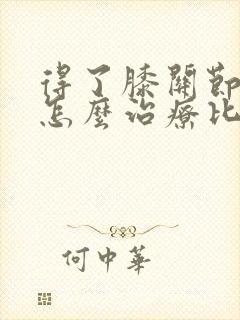 得了膝關節
怎麼治療比
何中華